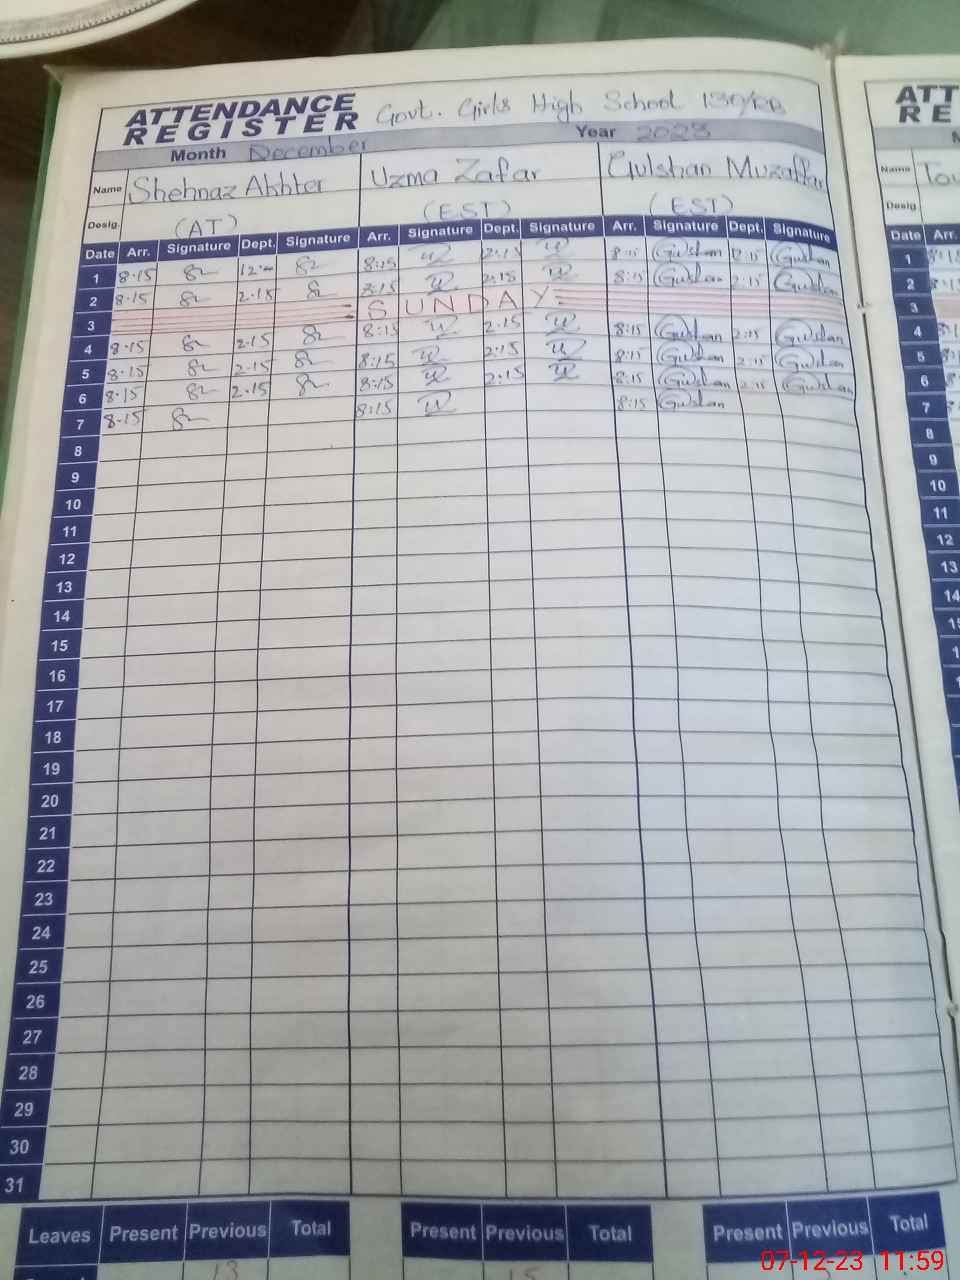 ATTENDANCE REGISTER Govt. Girls High School 130/RB
Month December Year 2023
Name Shehnaz Akhter Uzma Zafar Gulshan Muzaffar
Desig. (AT) (EST) (EST)
Date Arr. Signature Dept. Signature Arr. Signature Dept. Signature Arr. Signature Dept. Signature
1 8.15 12.00 8:15 12.15 8:15 Gulshan 12.15 Gulshan
2 8.15 2.15 8:15 2:15 8:15 Gulshan 2:15 Gulshan
3 SUNDAY
4 8.15 2.15 8:15 2.15 8:15 Gulshan 2:15 Gulshan
5 8.15 2.15 8:15 2:15 8:15 Gulshan 2:15 Gulshan
6 8.15 2.15 8:15 2:15 8:15 Gulshan 2:15 Gulshan
7 8.15 8:15 8:15 Gulshan
8
9
10
11
12
13
14
15
16
17
18
19
20
21
22
23
24
25
26
27
28
29
30
31
Leaves Present Previous Total Present Previous Total Present Previous Total
13 15
ATT
RE
Name Tou
Desig.
Date Arr.
1
2
3
4
5
6
7
8
9
10
11
12
13
14
07-12-23 11:59